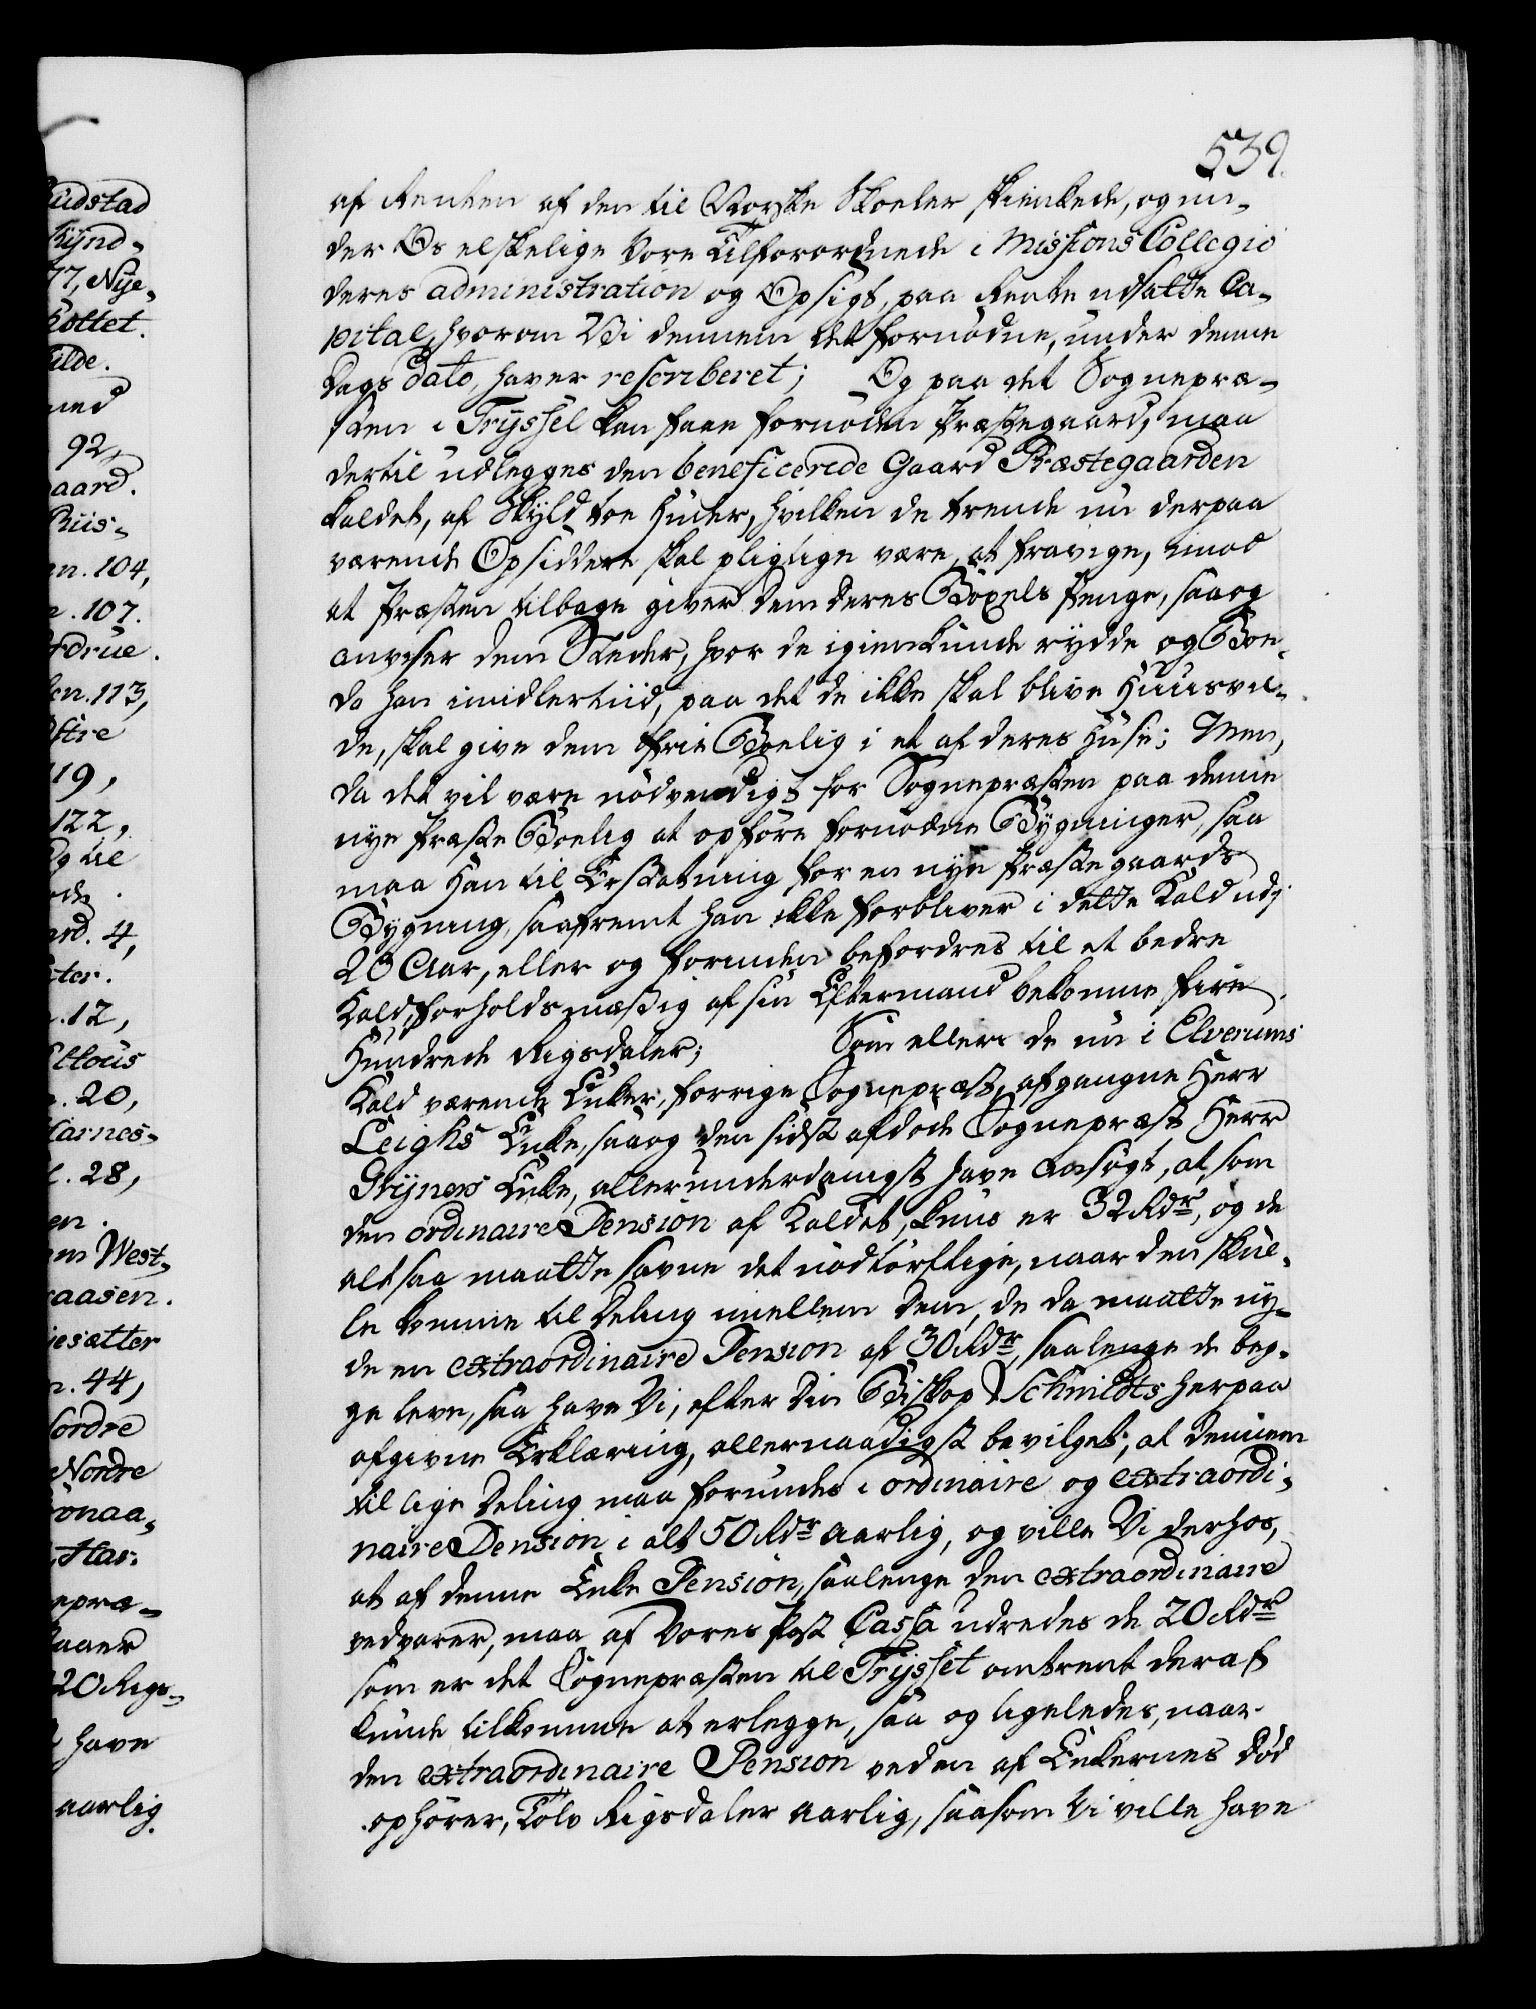 539.
af Renten af den til Norske Skoeler skienkede, og un¬
der Os elskelige Vore Tilforordnede i Missions Collegio
deres administration og Opsigt, paa Rente udsatte Ca¬
pital, hvorom Vi dennem det fornødne, under denne
Dags dato, haver rescriberet; Og paa det Sognepræ¬
sten i Tryssel kan faae fornøden Præstegaard, maa
dertil udlegges den beneficerede Gaard Præstegaarden
kaldet, af Skyld toe Huder, hvilken de trende nu derpaa
værende Opsiddere skal pligtige være, at fravige, imod
at Præsten tilbage giver dem deres Böxels Penge, saa og
anviser dem Steder, hvor de igien kunde rydde og Boe,
da han imidlertiid, paa det de ikke skal blive Huusvil¬
de, skal give dem frie Boelig i et af deres Huse; Men,
da det vil være nödvendigt for Sognepræsten paa denne
nye Præste Boelig at opföre fornødne Bygninger, saa
maa Han til Erstatning for en nye Præstegaards
Bygning, saafremt han ikke forbliver i dette Kald udj
20 Aar, eller og forinden befordres til et bedre
Kald, forholdsmæssig af sin Eftermand bekomme fire
Hundrede Rigsdaler; Som ellers de nu i Elverums
Kald værende Enker, forrige Sognepræst, afgangne Herr
Leighs Enke, saa og den sidst afdøde Sognepræst Herr
Gryners Enke, allerunderdanigst have ansögt, at, som
den ordinaire Pension af Kaldet, kuns er 32 Rdr, og de
altsaa maatte savne det nödtörftige, naar den skul¬
le komme til Deling imellem Dem, de da maatte ny¬
de en extraordinaire Pension af 30 Rdr, saalenge de beg¬
ge leve, saa have Vi, efter Din Biskop Schmidts herpaa
afgivne Erklæring, allernaadigst bevilget, at dennem
til lige Deling maa forundes i ordinaire og extraordi¬
naire Pension i alt 50 Rdr aarlig, og ville Vi derhos,
at af denne Enke Pension, saalenge den extraordinaire
vedvarer, maa af Vores Post Cassa udredes de 20 Rdr
som er det Sognepræsten til Tryssel omtrent deraf
kunde tilkomme at erlegge, saa og ligeledes, naar
den extraordinaire Pension ved en af Enkernes Död
ophörer, Tolv Rigsdaler aarlig, saasom Vi ville have